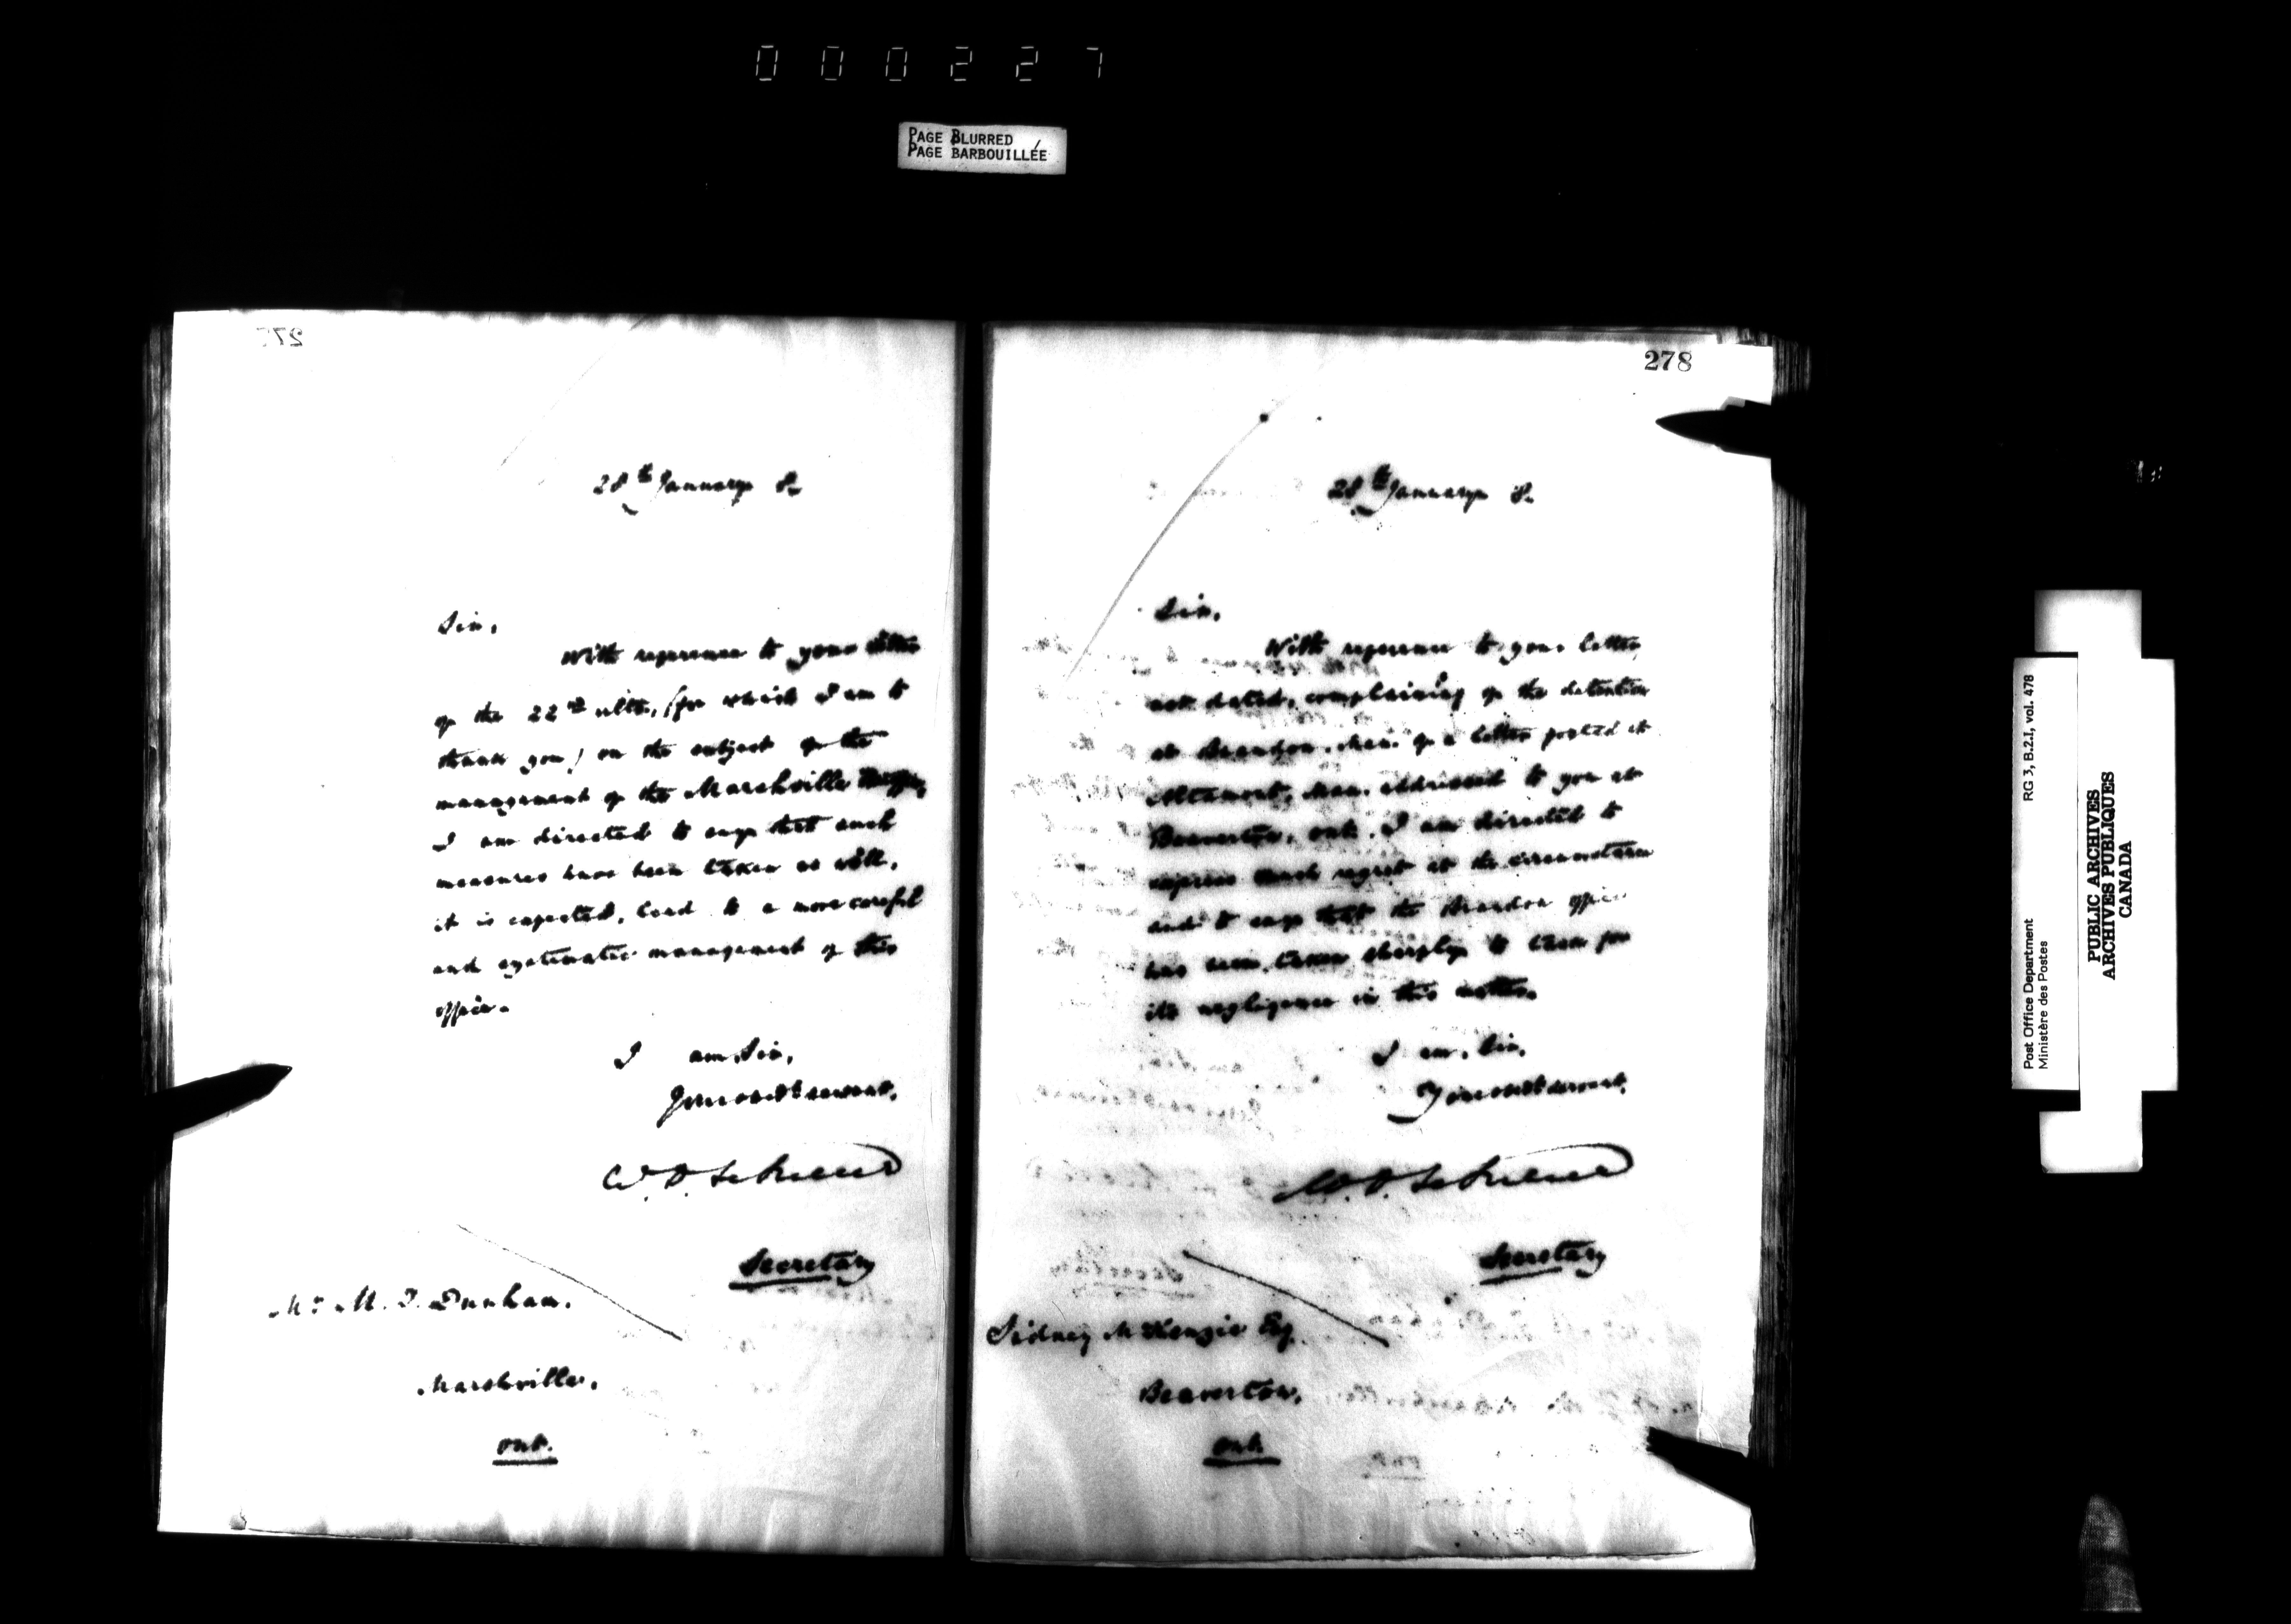 000227
PAGE BLURRED
PAGE BARBOUILLÉE
28th January
Sir,
With reference to your letter
of the 22nd ulto, (for which I am to
thank you) on the subject of the
management of the Marshville
I am directed to say that such
measures have been taken as will,
it is expected, lead to a more careful
and systematic management of this
office.
I am, Sir,
Your obedt servant,
Secretary
Mr. M. Dunham.
Marshville,
Ont.
278
28th January
Sir,
With reference to your letter,
not dated, complaining of the detention
at Brandon, Man. of a letter posted at
Altamont, Man. addressed to you at
Beaverton, Ont. I am directed to
express much regret at the circumstance
and to say that the Brandon office
has been taken sharply to task for
its negligence in this matter.
I am, Sir,
Your obedt servant,
Secretary
Sidney McKenzie Esq
Beaverton,
Ont.
Post Office Department RG 3, B.2.I, vol. 478
Ministère des Postes
PUBLIC ARCHIVES
ARCHIVES PUBLIQUES
CANADA